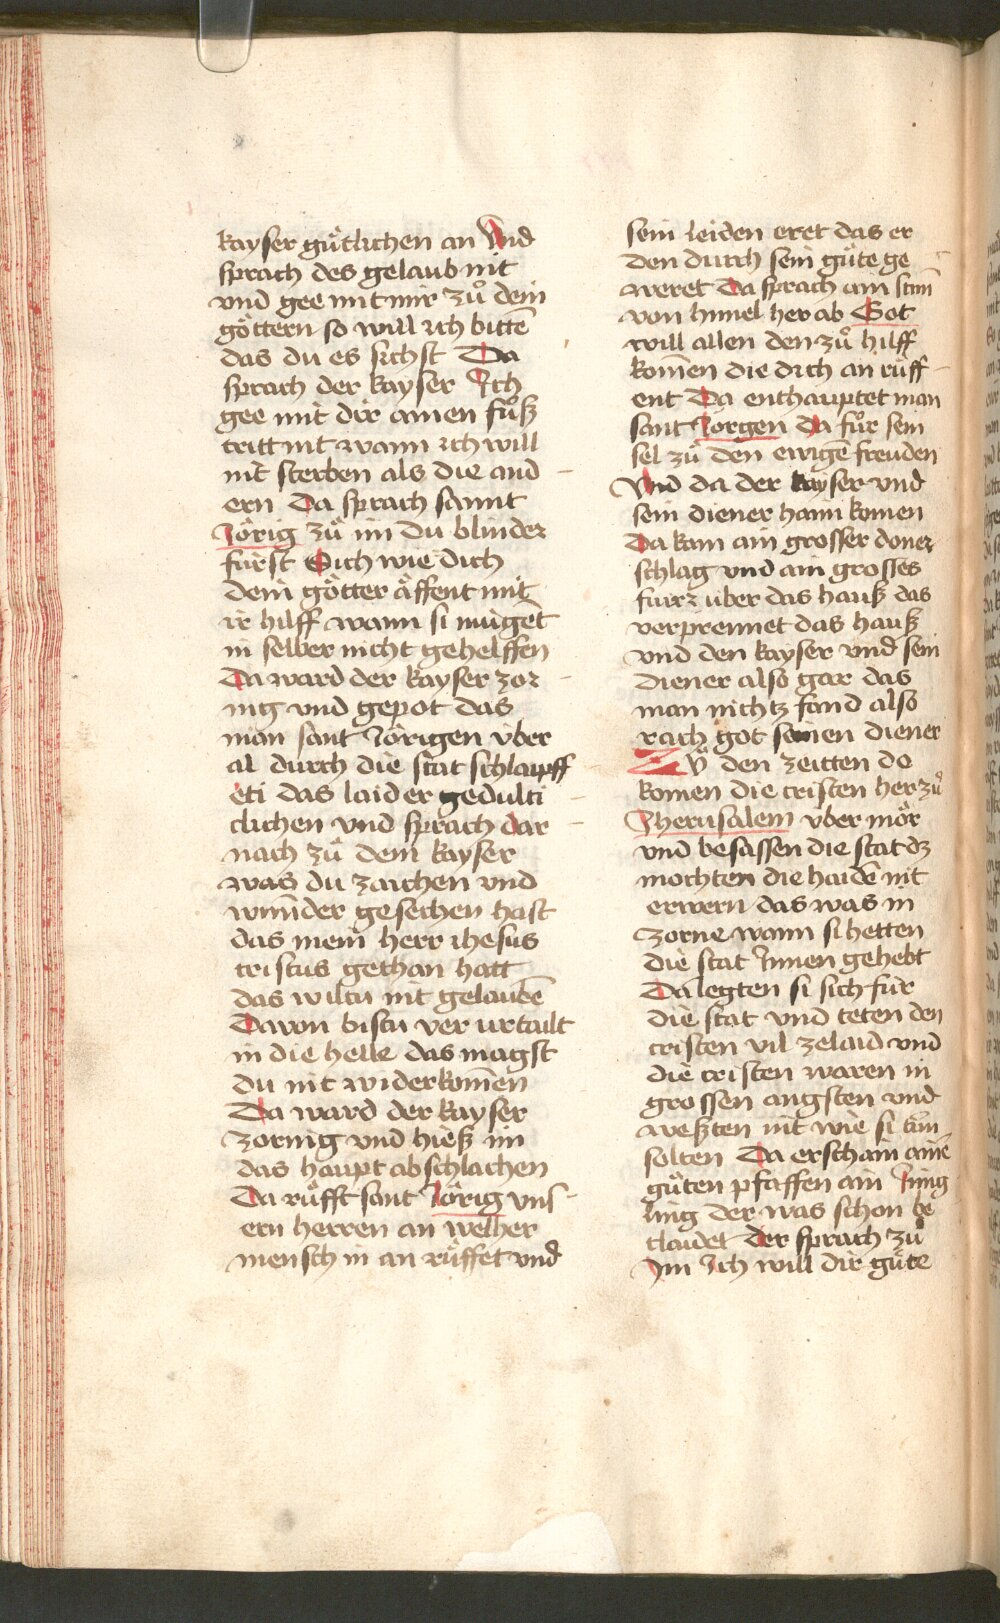 kayser gu̍tlichen an Vnd
sprach des gelaub nit
vnd gee mit mir zů dein
go̍ttern so will ich bitte̅
das du es sichst Da
sprach der kayser Ich
gee mit dir ainen fůß
tritt nit wann ich will
nit sterben als die and
ern Da sprach sannt
Jo̍rig zů im du blinder
fu̍rst Sich wie dich
dein go̍tter a̍ffent mit
ir hilff wann si mu̍gent
in selber nicht gehelffen
Da ward der kayser zor
nig vnd gepot das
man sant Jo̍rigen vber
al durch die stat schlaupff
eti das laid er gedulti
clichen vnd sprach dar
nach zů dem kayser
was du zaichen vnd
wunder gesechen hast
das mein herr ihesus
cristus gethan hatt
das wiltu nit gelaube̅
Davon bistu ver urtailt
in die helle das magst
du nit widerkome̅n
Da ward der kayser
zornig vnd hieß im
das haupt abschlachen
Da ru̍fft sant Jo̍rig vns
ern herren an welher
mensch in an ru̍ffet vnd
sein leiden eret das er
den durch sein gu̍te ge
weret Da sprach ain stim̅
von himel her ab Got
will allen den zů hilff
kome̅n die dich an ru̍ff
ent Da enthauptet man
sant Jo̍rgen Da fůr sein
sel zů den ewige̅ freuden
Vnd da der kayser vnd
sein diener haim komen
Da kam ain grosser doner
schlag vnd ain grosses
furr vber das hauß das
verprennet das hauß
vnd den kayser vnd sein
diener also gar das
man nichtz fand also
rach got seinen diener
Zů den zeitten do
komen die cristen her zů
Jherusalem vber mo̍r
vnd besassen die stat dz
mochten die haide̅ nit
erwern das was in
zorne wann si hetten
die stat Innen gehebt
Da legten si sich fu̍r
die stat vnd teten den
cristen vil ze laid vnd
die cristen waren in
grossen angsten vnd
weßten nit wie si tůn
solten Da erschain aine̅
gu̍ten pfaffen ain Ju̍ng
ling der was schon be
claidet der sprach zů
Im Ich will dir gu̍te